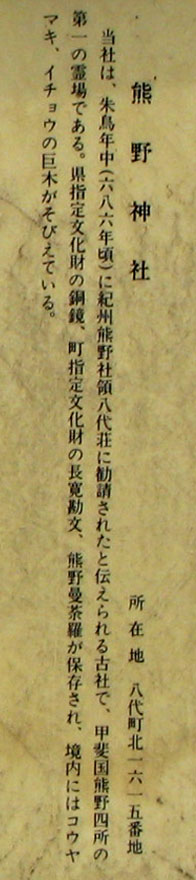 熊野神社
所在地 八代町北一六一五番地
当社は、朱鳥年中(六八六年頃)に紀州熊野社領八代荘に勧請されたと伝えられる古社で、甲斐国熊野四所の
第一の霊場である。県指定文化財の銅鏡、町指定文化財の長寛勘文、熊野曼荼羅が保存され、境内にはコウヤ
マキ、イチョウの巨木がそびえている。